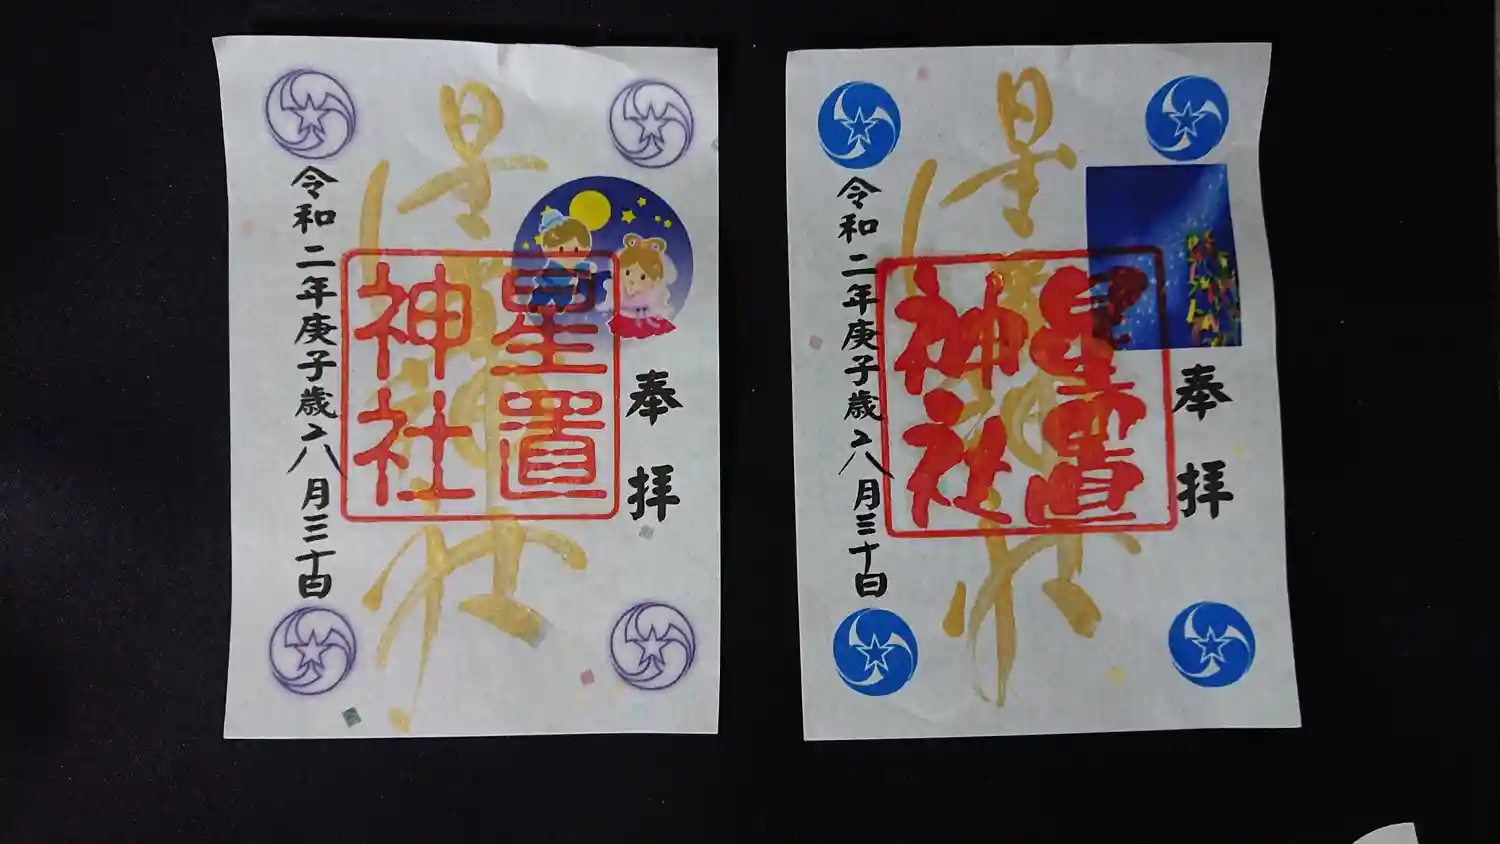 奉拝
星置神社
星置神社
令和二年庚子歳八月三十日
奉拝
星置神社
星置神社
令和二年庚子歳八月三十日